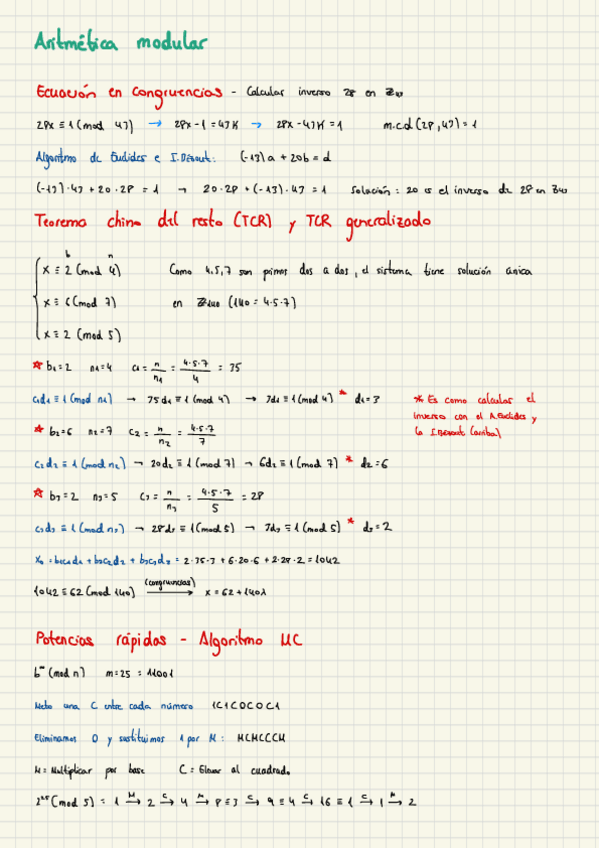 Aritmética modular
Ecuación en congruencias - Calcular inverso 28 en Z₄₇
28x ≡ 1 (mod 47) → 28x - 1 = 47K → 28x - 47K = 1 m.c.d (28, 47) = 1
Algoritmo de Euclides e I.Bézout: (-13)a + 20b = d
(-13)·47 + 20·28 = 1 → 20·28 + (-13)·47 = 1 Solución: 20 es el inverso de 28 en Z₄₇
Teorema chino del resto (TCR) y TCR generalizado
b n
x ≡ 2 (mod 4) Como 4,5,7 son primos dos a dos, el sistema tiene solución única
x ≡ 6 (mod 7) en Z₁₄₀ (140 = 4·5·7)
x ≡ 2 (mod 5)
* b₁ = 2 n₁ = 4 c₁ = n/n₁ = 4·5·7/4 = 35
c₁d₁ ≡ 1 (mod n₁) → 35d₁ ≡ 1 (mod 4) → 3d₁ ≡ 1 (mod 4) * d₁ = 3
* Es como calcular el
inverso con el A.Euclides y
la I.Bézout (arriba)
* b₂ = 6 n₂ = 7 c₂ = n/n₂ = 4·5·7/7
c₂d₂ ≡ 1 (mod n₂) → 20d₂ ≡ 1 (mod 7) → 6d₂ ≡ 1 (mod 7) * d₂ = 6
* b₃ = 2 n₃ = 5 c₃ = n/n₃ = 4·5·7/5 = 28
c₃d₃ ≡ 1 (mod n₃) → 28d₃ ≡ 1 (mod 5) → 3d₃ ≡ 1 (mod 5) * d₃ = 2
x₀ = b₁c₁d₁ + b₂c₂d₂ + b₃c₃d₃ = 2·35·3 + 6·20·6 + 2·28·2 = 1042
1042 ≡ 62 (mod 140) (congruencias) → x = 62 + 140λ
Potencias rápidas - Algoritmo MC
bᵐ (mod n) m = 25 = 11001
Meto una C entre cada número 1C1C0C0C1
Eliminamos 0 y sustituimos 1 por M: MCMCCCM
M = Multiplicar por base C = Elevar al cuadrado
2²⁵ (mod 5) = 1 M→ 2 C→ 4 M→ 8 ≡ 3 C→ 9 ≡ 4 C→ 16 ≡ 1 C→ 1 M→ 2